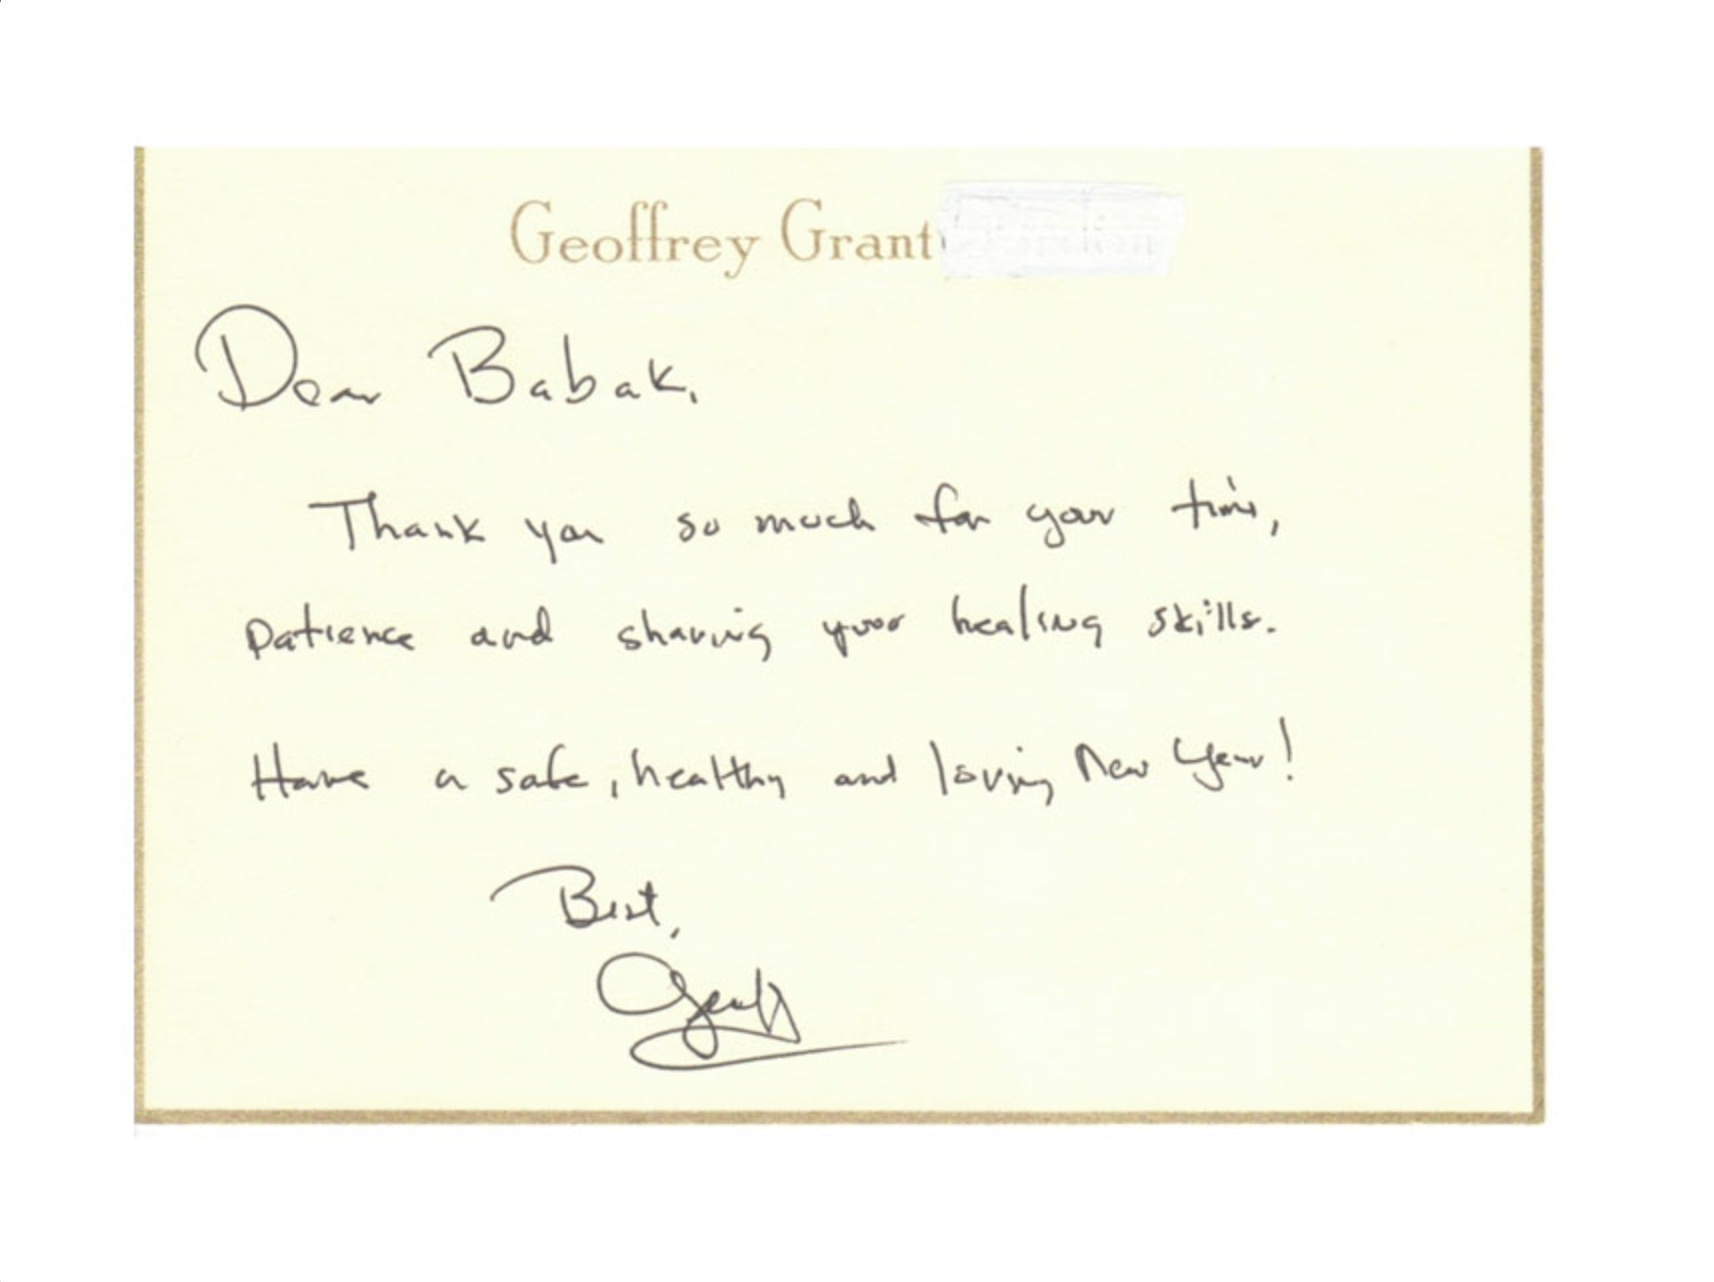 Geoffrey Grant
Dear Babak,
Thank you so much for your time,
patience and sharing your healing skills.
Have a safe, healthy and loving New Year!
Best,
Geoff